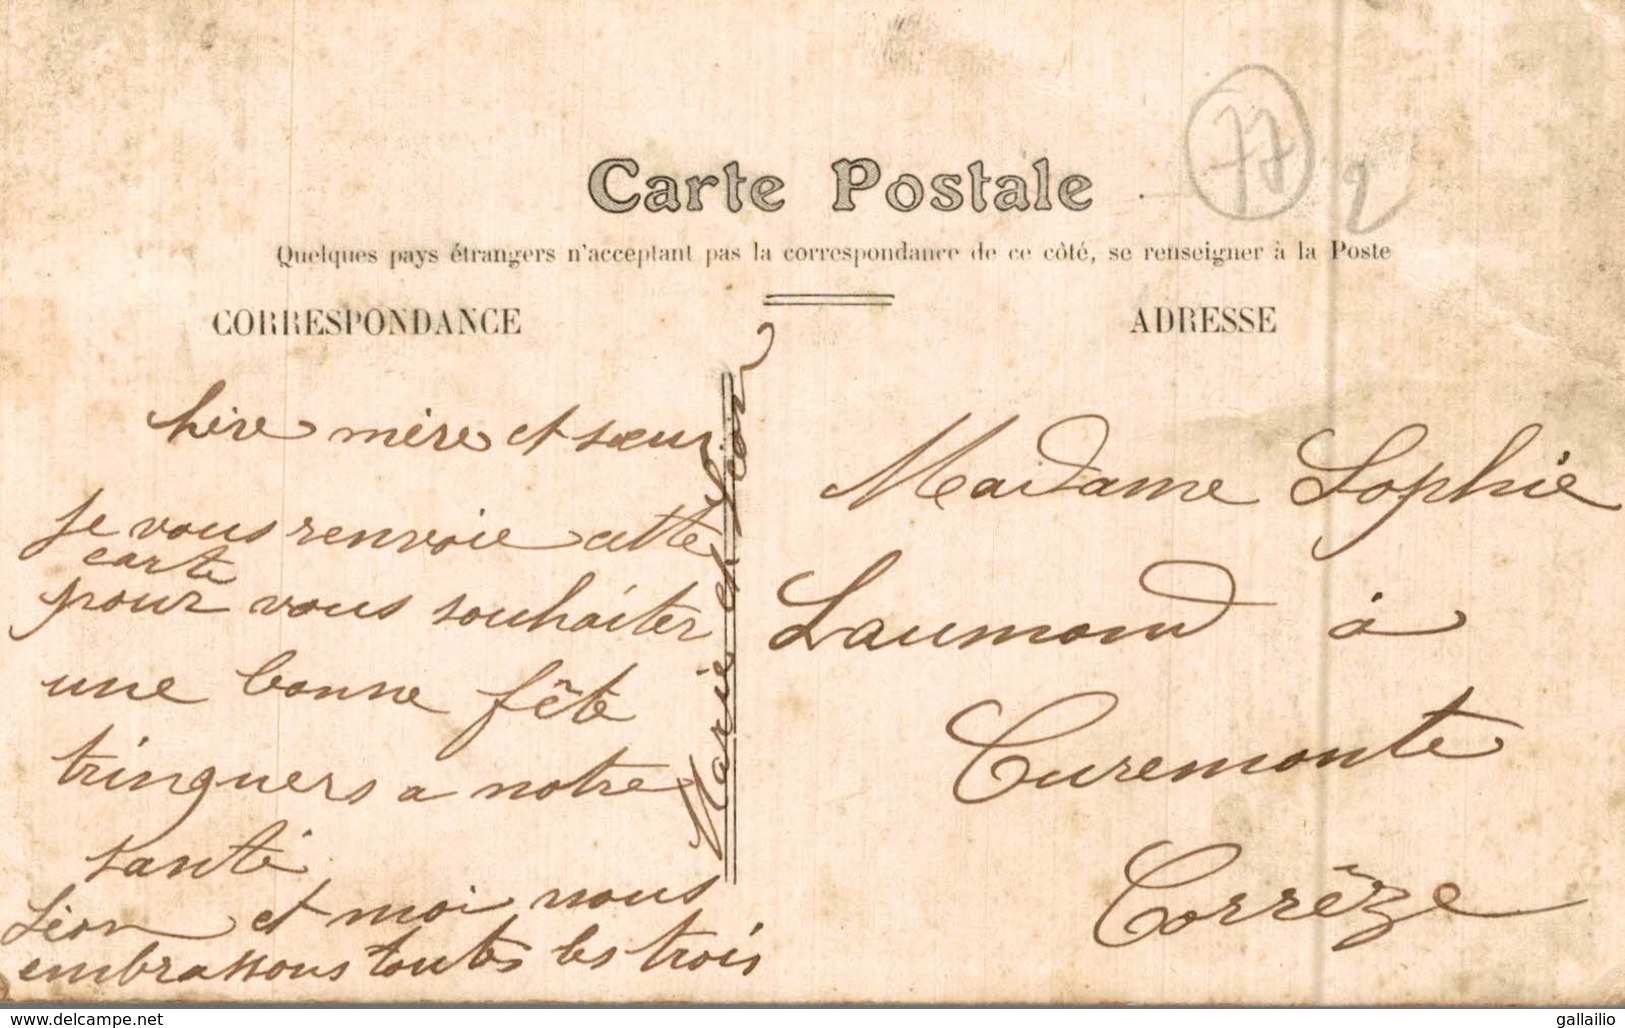 77
2
Carte Postale
Quelques pays étrangers n'acceptant pas la correspondance de ce côté, se renseigner à la Poste
CORRESPONDANCE
hère mère et sœur
je vous renvoie cette
carte
pour vous souhaiter
une bonne fête
tringuers a notre
santé
Léon et moi nous
embrassons toutes les trois
Marie et Léon
ADRESSE
Madame Sophie
Laumond à
Curemonte
Corrèze
www.delcampe.net
gallailio